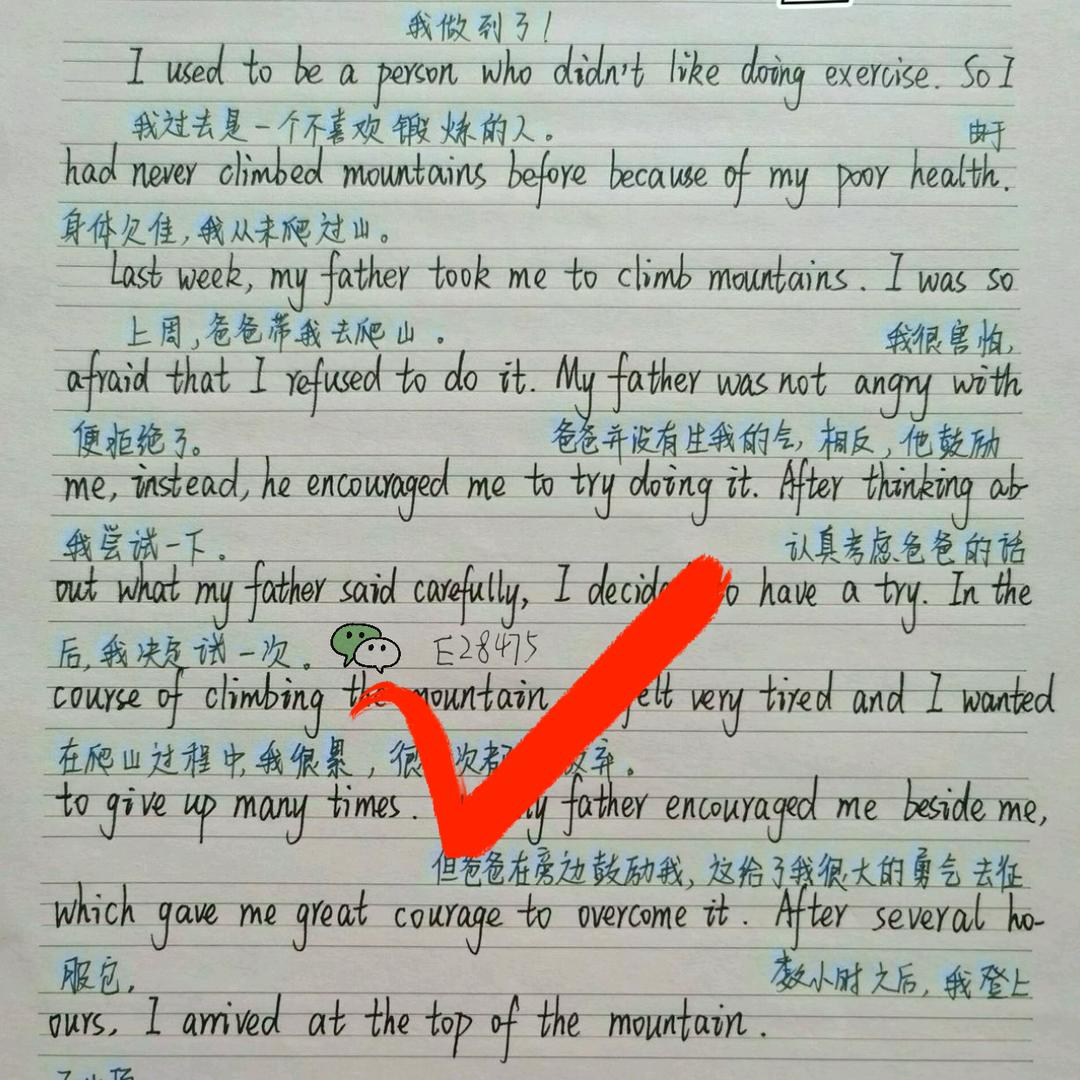 我做到了!
I used to be a person who didn't like doing exercise. So I
我过去是一个不喜欢锻炼的人。 由于
had never climbed mountains before because of my poor health.
身体欠佳,我从未爬过山。
Last week, my father took me to climb mountains. I was so
上周,爸爸带我去爬山。 我很害怕,
afraid that I refused to do it. My father was not angry with
便拒绝了。 爸爸并没有生我的气,相反,他鼓励
me, instead, he encouraged me to try doing it. After thinking ab-
我尝试一下。 认真考虑爸爸的话
out what my father said carefully, I decid o have a try. In the
后,我决定试一次。 E28475
course of climbing the mountain elt very tired and I wanted
在爬山过程中,我很累,很 次都 放弃。
to give up many times. y father encouraged me beside me,
但爸爸在旁边鼓励我,这给了我很大的勇气去征
which gave me great courage to overcome it. After several ho-
服它。 数小时之后,我登上
ours, I arrived at the top of the mountain.